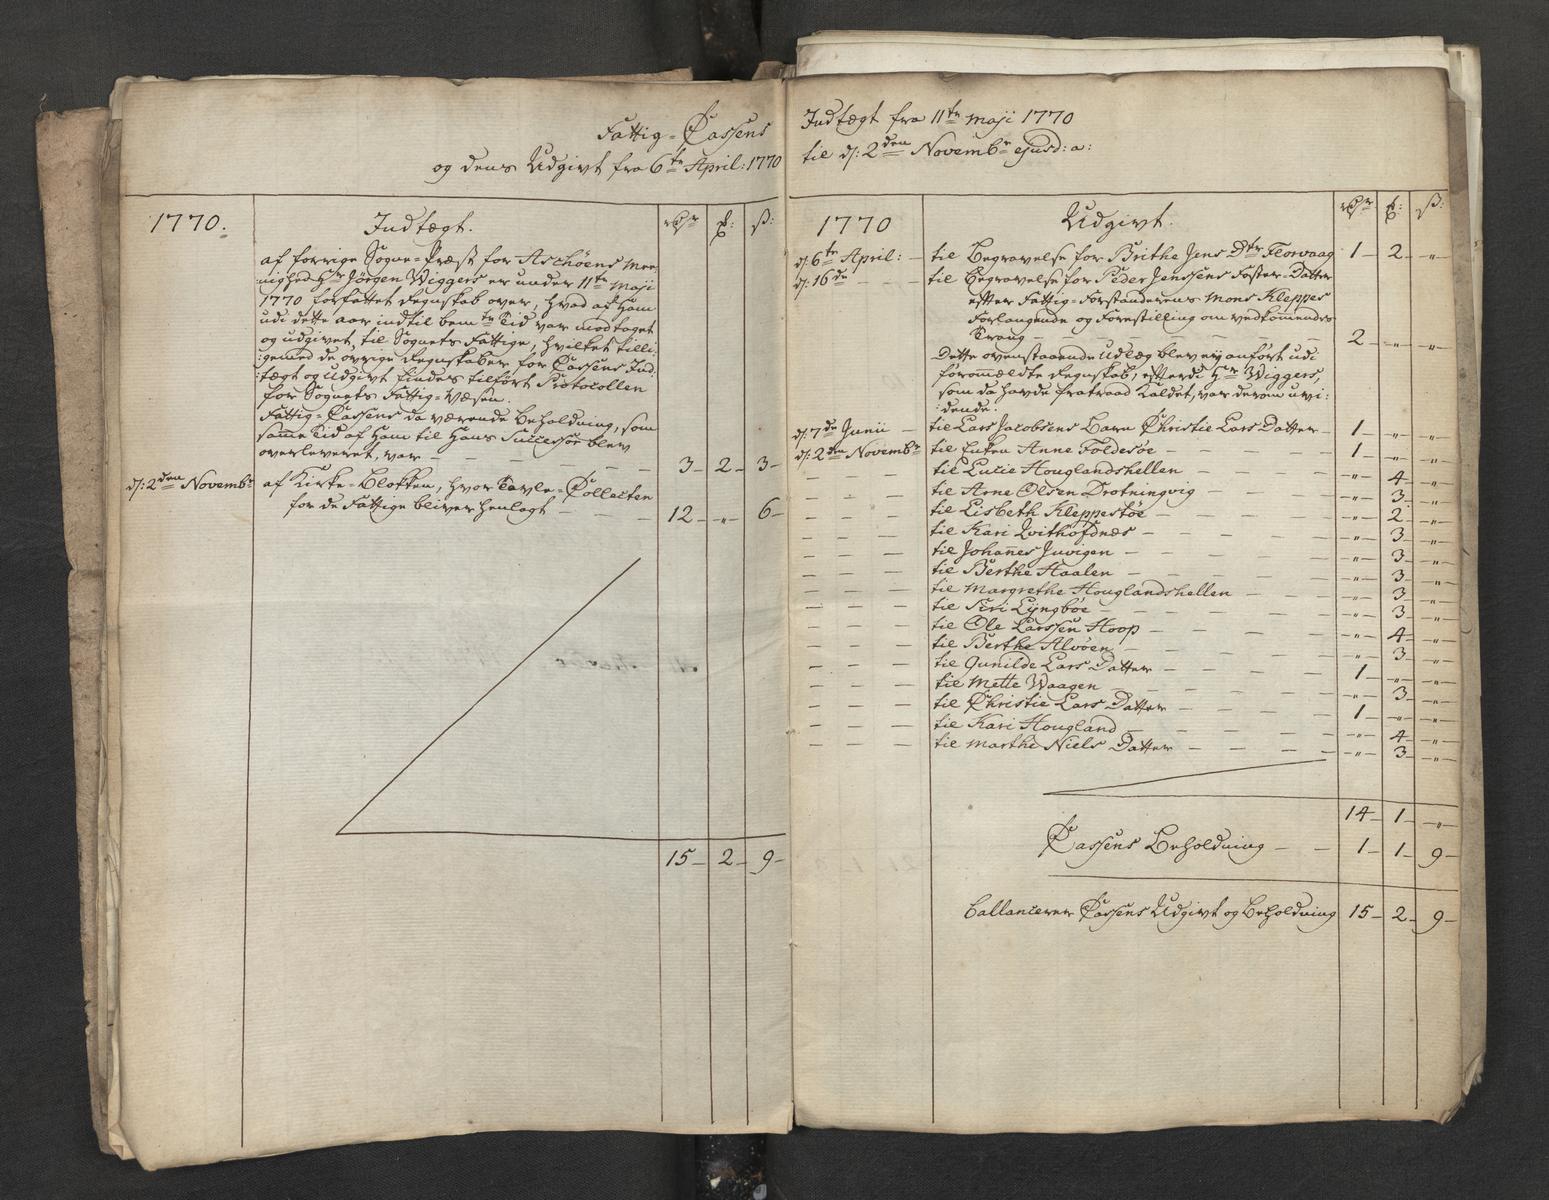 Fattig-Cassens
og dens Udgivt fra 6te April: 1770
1770.
Indtægt.
rdr
ß:
af forrige Sogne-Præst for Aschøens Mee-
nighed Hr Jørgen Wiggers er under 11te Maji
1770 forfattet Regnskab over, hvad af ham
udi dette aar indtil bemte Tid var modtaget
og udgivet, til Sognets Fattige, hvilket tilli-
gemed de øvrige Regnskaber for Cassens Ind-
tægt og Udgivt findes tilført Protocollen
for Sognets Fattig-Væsen.
Fattig-Cassens da værende Beholdning, som
samme Tid af ham til hans Successor blev
overleveret, var — 3 — 2 — 3 —
d: 2den Novembr
af Kirke-Blokken, hvor Tavle-Collecten
for de Fattige bliver henlagt — 12 — „ — 6 —
15 — 2 — 9 —
Indtægt fra 11te Maji 1770
til d: 2den Novembr ejusd: a:
1770
Udgivt.
rdr
ß:
d: 6te April: — til Begravelse for Brithe Jens Dtr Florvaag 1 — 2 — „ —
d: 16de — til Begravelse for Peder Jenssens Foster-Datter
efter Fattig-Forstanderens Mons Kleppes
Forlangende og Forestilling om vedkommendes
Trang — 2 — „ — „ —
Dette ovenstaaende Udlæg blev ej anført udi
førommældte Regnskab, efterdi Hr Wiggers,
som da havde fratraad Kaldet, var derom uvi-
dende.
d: 7de Junii — til Lars Jacobsens Barn Christie Lars Datter — 1 — „ — „ —
d: 2den Novembr til Enken Anne Foldesøe — 1 — „ — „ —
— til Lucie Houglandshellen — „ — 4 — „ —
— til Arne Olsen Drotningvig — „ — 3 — „ —
— til Lisbeth Kleppestøe — „ — 2 — „ —
— til Kari Qvithofdnæs — „ — 3 — „ —
— til Johanes Juvigen — „ — 3 — „ —
— til Berthe Haalen — „ — 3 — „ —
— til Margrethe Houglandshellen — „ — 3 — „ —
— til Siri Lyngbøe — „ — 3 — „ —
— til Ole Larssen Hoop — „ — 4 — „ —
— til Berthe Alvøen — „ — 3 — „ —
— til Gunilde Lars Datter — 1 — „ — „ —
— til Mette Waagen — „ — 3 — „ —
— til Christie Lars Datter — 1 — „ — „ —
— til Kari Hougland — „ — 4 — „ —
— til Marthe Niels Datter — „ — 3 — „ —
14 — 1 — „ —
Cassens Beholdning — 1 — 1 — 9 —
Ballancerer Cassens Udgivt og Beholdning 15 — 2 — 9 —